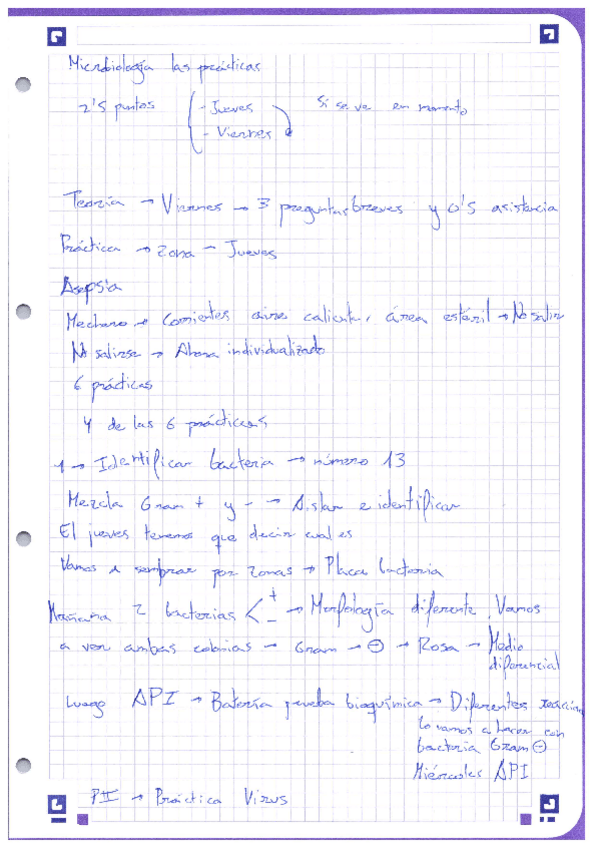 Microbiología las prácticas
2'5 puntos
- Jueves
- Viernes
Si se ve en momento
Teoría → Viernes → 3 preguntas breves y 0'5 asistencia
Práctica → zona → Jueves
Asepsia
Mechero → Corrientes aire caliente, área estéril → No salir
No salirse → Ahora individualizado
6 prácticas
4 de las 6 prácticas
1 → Identificar bacteria → número 13
Mezcla Gram + y - → Aislar e identificar
El jueves tenemos que decir cual es
Vamos a sembrar por zonas → Placa bacteria
Mañana 2 bacterias < + - → Morfología diferente. Vamos
a ver ambas colonias → Gram → ⊖ → Rosa → Medio
diferencial
Luego API → Batería prueba bioquímica → Diferentes
lo vamos a hacer con
bacteria Gram ⊖
Miércoles API
PII → Práctica Virus